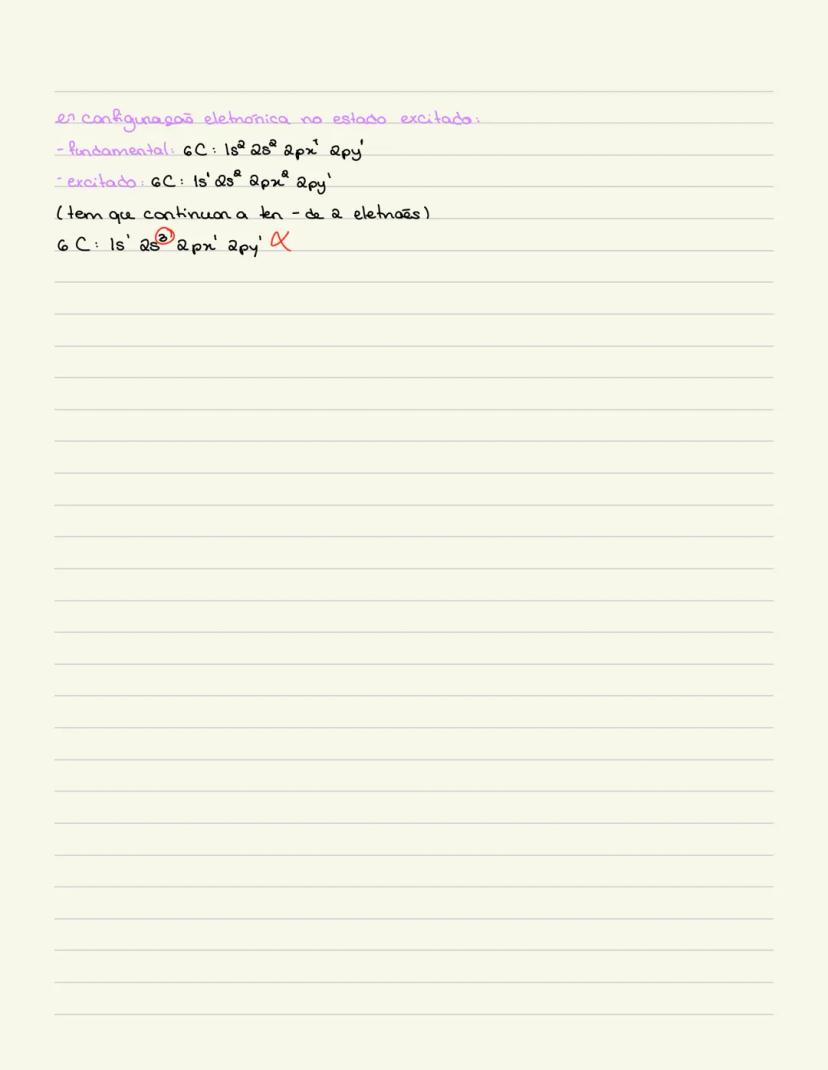 ↳ configuração eletrónica no estado excitado:
- fundamental: ₆C: 1s² 2s² 2px¹ 2py¹
- excitado: ₆C: 1s¹ 2s² 2px² 2py¹
(tem que continuar a ter - de 2 eletrões)
₆C: 1s¹ 2s³ 2px¹ 2py¹ X